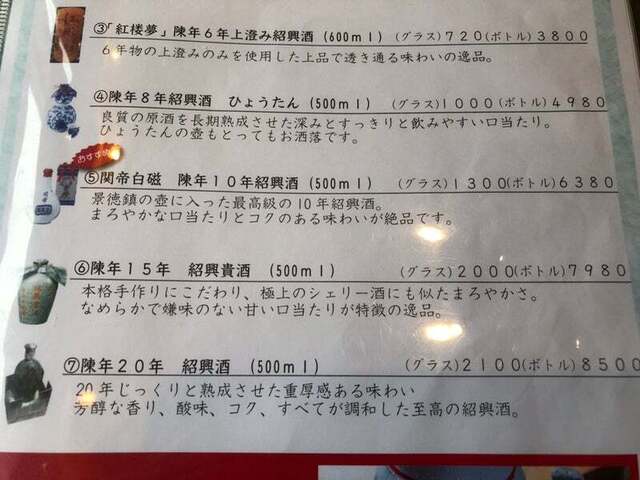 ③「紅楼夢」陳年６年上澄み紹興酒 (600ml) (グラス)720(ボトル)3800
６年物の上澄みのみを使用した上品で透き通る味わいの逸品。
④陳年８年紹興酒 ひょうたん (500ml) (グラス)1000(ボトル)4980
良質の原酒を長期熟成させた深みとすっきりと飲みやすい口当たり。
ひょうたんの壺もとってもお洒落です。
おすすめ
⑤関帝白磁 陳年１０年紹興酒 (500ml) (グラス)1300(ボトル)6380
景徳鎮の壺に入った最高級の10年紹興酒。
まろやかな口当たりとコクのある味わいが絶品です。
⑥陳年１５年 紹興貴酒 (500ml) (グラス)2000(ボトル)7980
本格手作りにこだわり、極上のシェリー酒にも似たまろやかさ。
なめらかで嫌味のない甘い口当たりが特徴の逸品。
⑦陳年２０年 紹興酒 (500ml) (グラス)2100(ボトル)8500
20年じっくりと熟成させた重厚感ある味わい
芳醇な香り、酸味、コク、すべてが調和した至高の紹興酒。